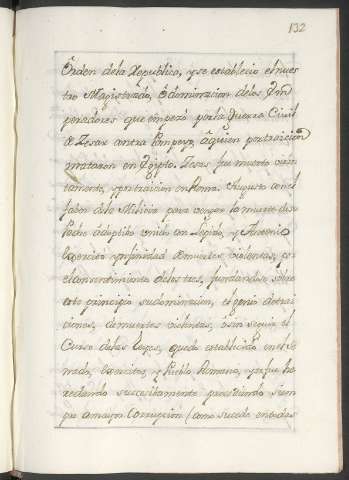 132
Orden dela Republica, y se establecio el nues
tro Magistrado, ò dominacion delos Ym
peradores que empezò por la Guerra Civil
de Zesar contra Pompeyo, à quien por traicion
mataron en Egipto. Zesar fue muerto viole
tamente, y por traicion en Roma. Augusto con el
favor dela Milicia para vengar la muerte de su
Padre adoptibo unido con Lepido, y Antonio
Exercitò infinidad de muertes violentas, por
el consentimiento delos tres, fundandose sobre
este principio su dominacion, el genio de trai
ciones, de muertes violentas, ò sin seguir el
Curso delas Leyes, quedò establecido en el Se
nado, Exercitos, y Pueblo Romano, y se fue he
redando succesibamente procediendo siem
pre a mayor Corrupcion (como sucede en todas